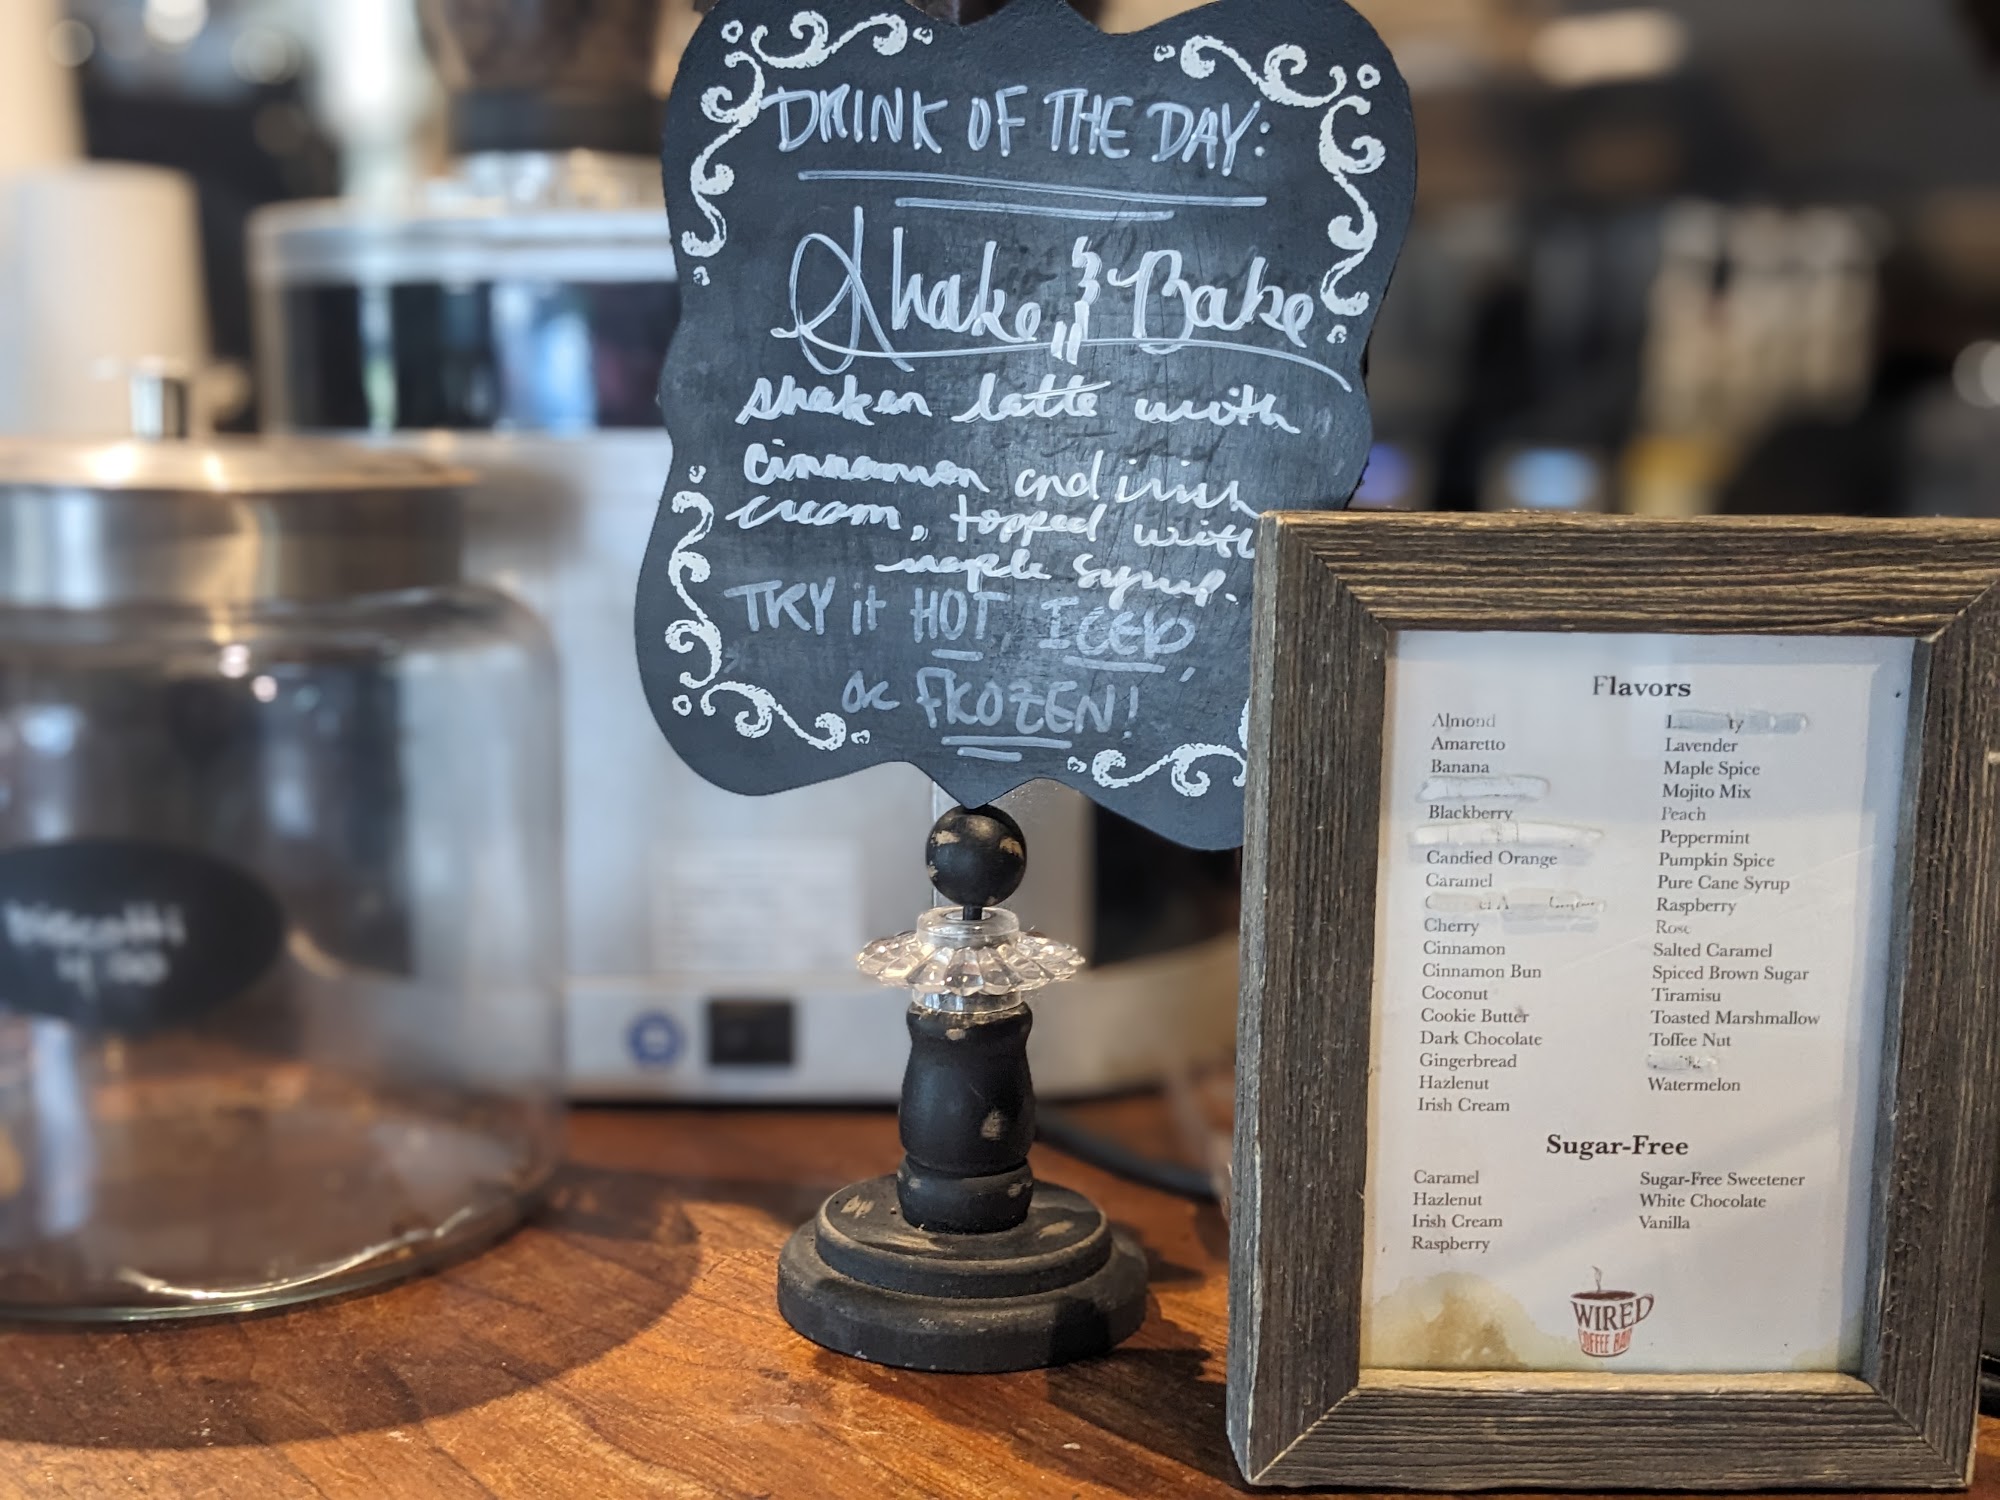 DRINK OF THE DAY:
Shake & Bake
shaken latte with
cinnamon and irish
cream, topped with
maple syrup.
TRY it HOT, ICED,
or FROZEN!
biscotti
Flavors
Almond
Amaretto
Banana
Blackberry
Candied Orange
Caramel
Cherry
Cinnamon
Cinnamon Bun
Coconut
Cookie Butter
Dark Chocolate
Gingerbread
Hazlenut
Irish Cream
Lavender
Maple Spice
Mojito Mix
Peach
Peppermint
Pumpkin Spice
Pure Cane Syrup
Raspberry
Rose
Salted Caramel
Spiced Brown Sugar
Tiramisu
Toasted Marshmallow
Toffee Nut
Watermelon
Sugar-Free
Caramel
Hazlenut
Irish Cream
Raspberry
Sugar-Free Sweetener
White Chocolate
Vanilla
WIRED
COFFEE BAR